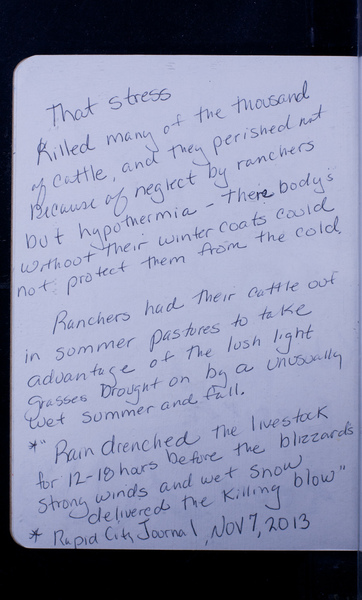 That stress
Killed many of the thousand
of cattle, and they perished not
because of neglect by ranchers
but hypothermia - there body's
without their winter coats could
not protect them from the cold.
Ranchers had their cattle out
in summer pastures to take
advantage of the lush light
grasses brought on by a unusually
wet summer and fall.
*" Rain drenched the livestock
for 12-18 hours before the blizzards
strong winds and wet snow
delivered the killing blow"
* Rapid City Journal, NOV 7, 2013